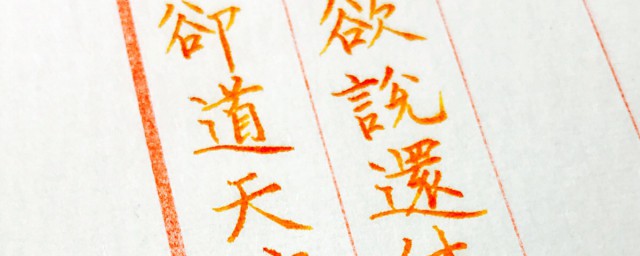 欲說還
卻道天